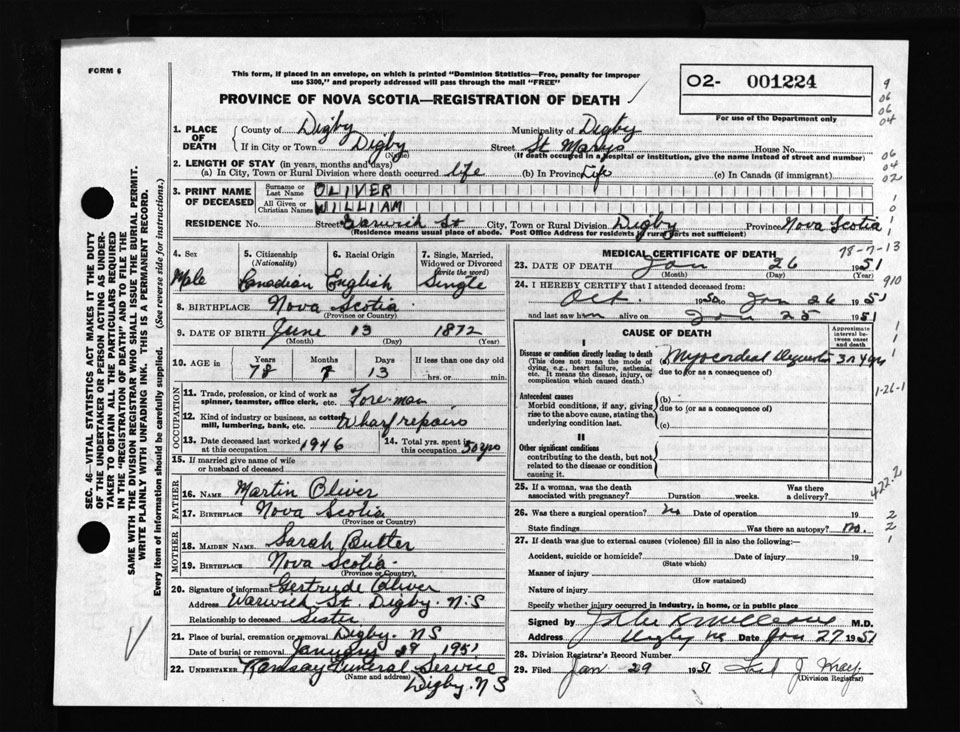 FORM 6
This form, if placed in an envelope, on which is printed "Dominion Statistics—Free, penalty for improper
use $300," and properly addressed will pass through the mail "FREE"
PROVINCE OF NOVA SCOTIA—REGISTRATION OF DEATH
O2- 001224
For use of the Department only
1. PLACE OF DEATH
County of Digby Municipality of Digby
If in City or Town Digby Street St Marys House No.
(Name) (If death occurred in a hospital or institution, give the name instead of street and number)
2. LENGTH OF STAY (in years, months and days)
(a) In City, Town or Rural Division where death occurred life (b) In Province Life (c) In Canada (if immigrant)
3. PRINT NAME OF DECEASED
Surname or Last Name OLIVER
All Given or Christian Names WILLIAM
RESIDENCE No. Street Warwick St City, Town or Rural Division Digby Province Nova Scotia
(Residence means usual place of abode. Post Office Address for residents in rural parts not sufficient)
4. Sex Male
5. Citizenship (Nationality) Canadian
6. Racial Origin English
7. Single, Married, Widowed or Divorced (write the word) Single
8. BIRTHPLACE Nova Scotia
(Province or Country)
9. DATE OF BIRTH June 13 1872
(Month) (Day) (Year)
10. AGE in Years 78 Months 7 Days 13 If less than one day old
hrs. or min.
OCCUPATION
11. Trade, profession, or kind of work as spinner, teamster, office clerk, etc. Fore-man
12. Kind of industry or business, as cotton mill, lumbering, bank, etc. Wharf repairs
13. Date deceased last worked at this occupation 1946
14. Total yrs. spent in this occupation 50 yrs
15. If married give name of wife or husband of deceased
FATHER
16. NAME Martin Oliver
17. BIRTHPLACE Nova Scotia
(Province or Country)
MOTHER
18. MAIDEN NAME Sarah Butler
19. BIRTHPLACE Nova Scotia
(Province or Country)
20. Signature of informant Gertrude Oliver
Address Warwick St. Digby. N.S
Relationship to deceased Sister
21. Place of burial, cremation or removal Digby. NS
Date of burial or removal January 29 1951
22. UNDERTAKER Ramsay Funeral Service
(Name and address)
Digby. N S
MEDICAL CERTIFICATE OF DEATH
78-7-13
23. DATE OF DEATH Jan 26 1951
(Month) (Day) (Year)
24. I HEREBY CERTIFY that I attended deceased from:
Oct. 1950 to Jan 26 1951
and last saw him alive on Jan 25 1951
CAUSE OF DEATH
Approximate interval between onset and death
I
Disease or condition directly leading to death
(This does not mean the mode of dying, e.g., heart failure, asthenia, etc. It means the disease, injury, or complication which caused death.)
(a) Myocardial 3 or 4 yrs
due to (or as a consequence of)
Antecedent causes
Morbid conditions, if any, giving rise to the above cause, stating the underlying condition last.
(b)
due to (or as a consequence of)
(c)
II
Other significant conditions
contributing to the death, but not related to the disease or condition causing it.
25. If a woman, was the death associated with pregnancy? Duration weeks. Was there a delivery?
26. Was there a surgical operation? No Date of operation 19
State findings Was there an autopsy? No.
27. If death was due to external causes (violence) fill in also the following:
Accident, suicide or homicide? Date of injury 19
(State which)
Manner of injury
(How sustained)
Nature of injury
Specify whether injury occurred in industry, in home, or in public place
Signed by M.D.
Address Digby NS Date Jan 27 1951
28. Division Registrar's Record Number
29. Filed Jan 29 1951
(Division Registrar)
SEC. 46—VITAL STATISTICS ACT MAKES IT THE DUTY
OF THE UNDERTAKER OR PERSON ACTING AS UNDER-
TAKER TO OBTAIN ALL THE PARTICULARS REQUIRED
IN THE "REGISTRATION OF DEATH" AND TO FILE THE
SAME WITH THE DIVISION REGISTRAR WHO SHALL ISSUE THE BURIAL PERMIT.
WRITE PLAINLY WITH UNFADING INK. THIS IS A PERMANENT RECORD.
Every item of information should be carefully supplied. (See reverse side for instructions.)
9
06
06
04
06
04
02
910
1-26-1
422-2
2
2
1